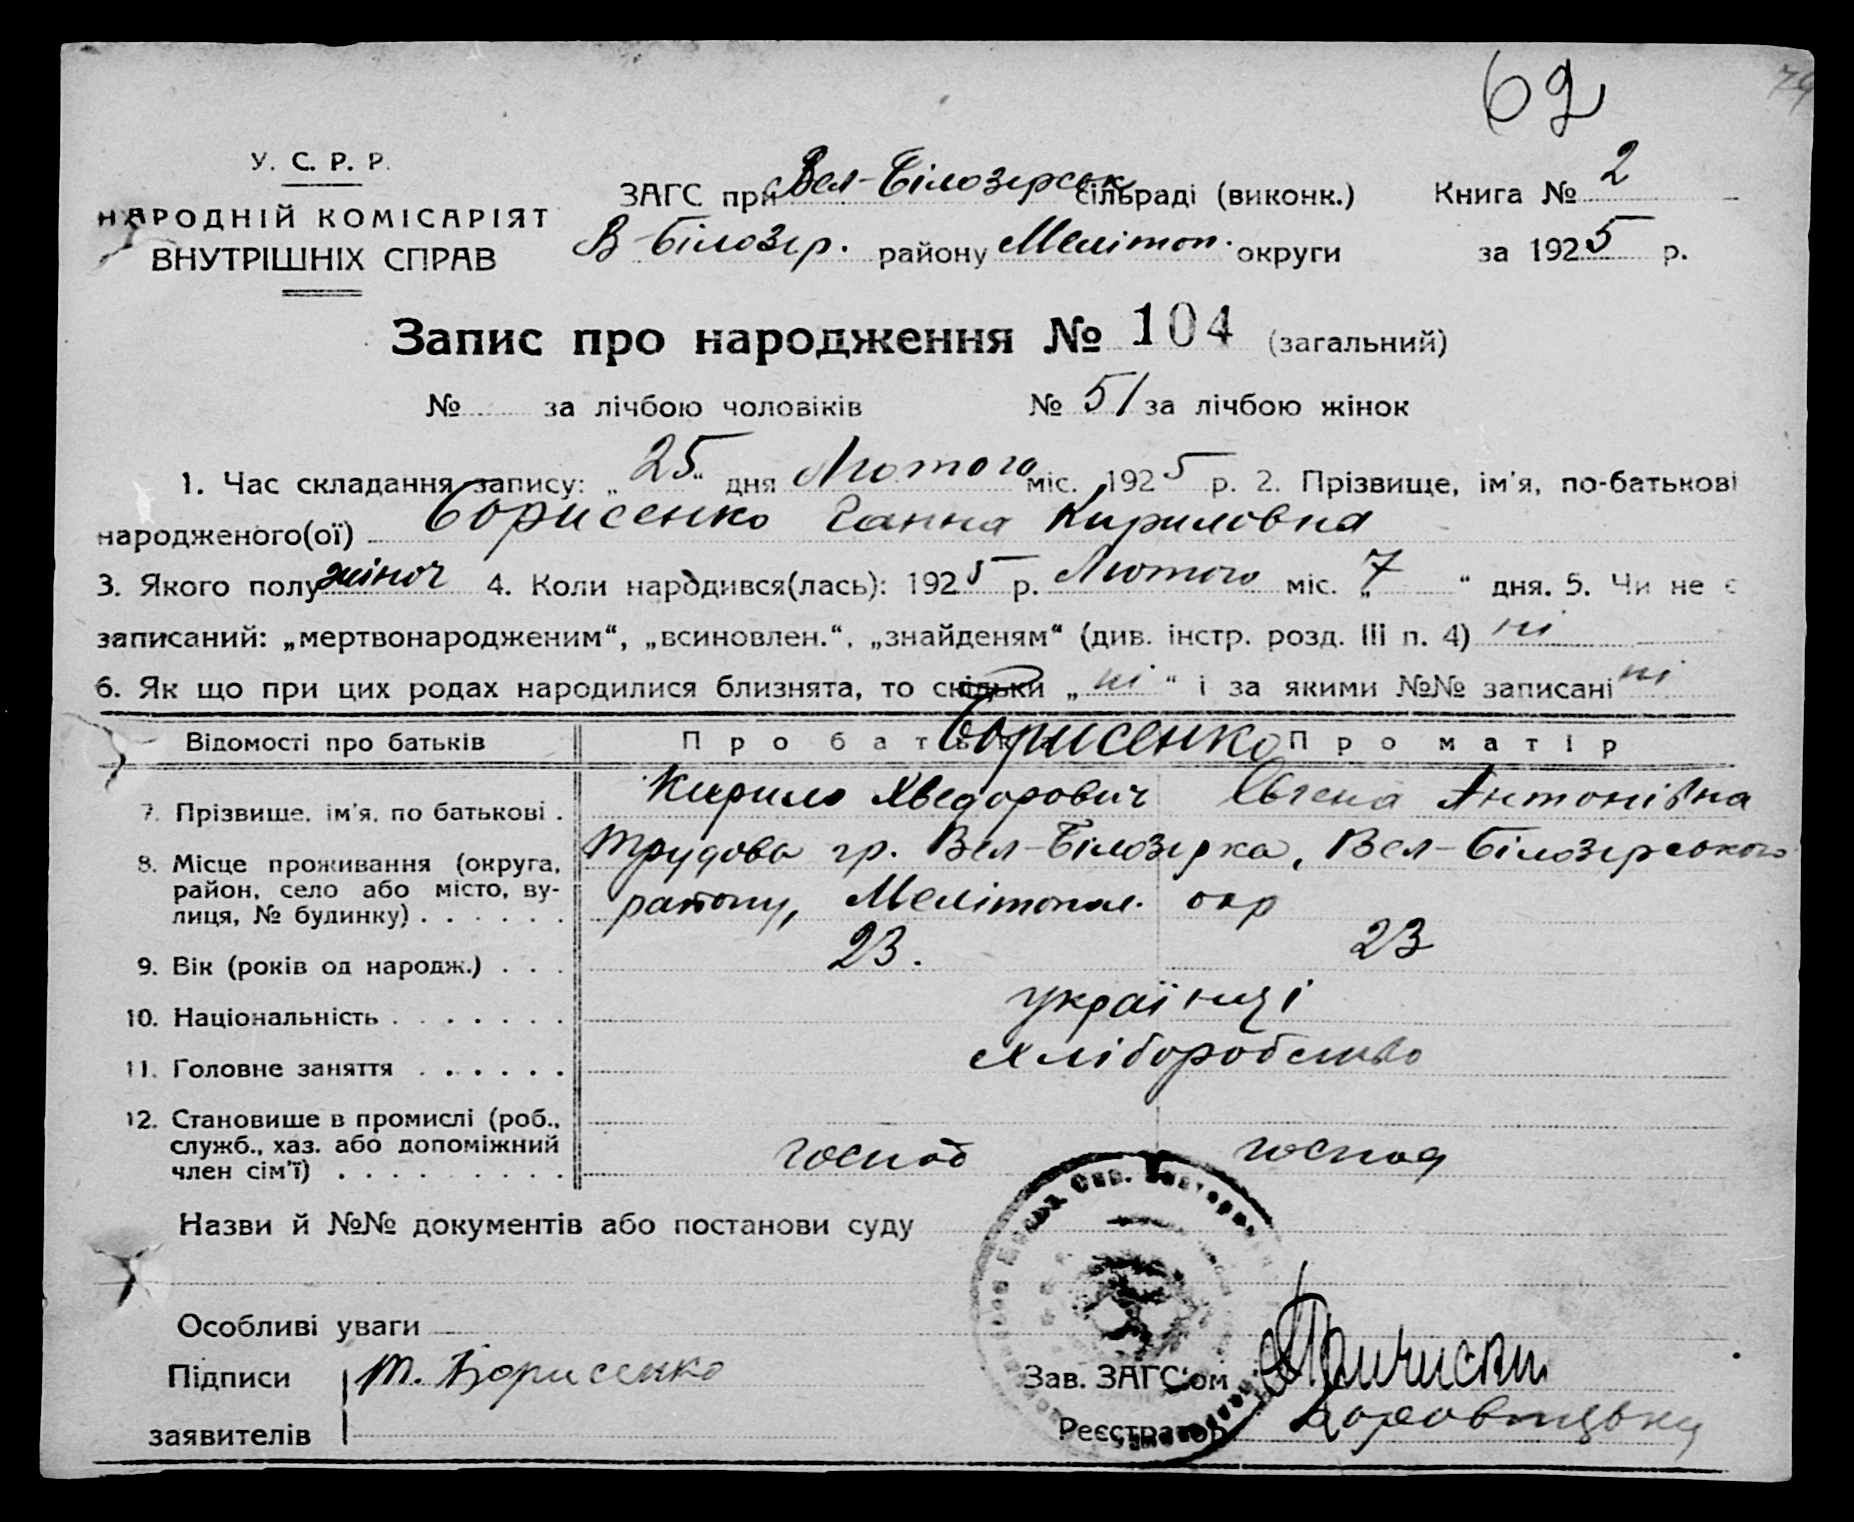 62
79
У. С. Р. Р.
НАРОДНІЙ КОМІСАРІЯТ
ВНУТРІШНІХ СПРАВ
ЗАГС при Вел-Білозерськ сільраді (виконк.) Книга № 2
В-Білозер. району Меліtоп. округи за 1925 р.
Запис про народження № 104 (загальний)
№ за лічбою чоловіків № 51 за лічбою жінок
1. Час складання запису: „25“ дня Лютого міс. 1925 р. 2. Прізвище, ім'я, по-батькові
народженого(ої) Борисенко Ганна Кириловна
3. Якого полу жіноч 4. Коли народився(лась): 1925 р. Лютого міс. „7“ дня. 5. Чи не є
записаний: „мертвонародженим“, „всиновлен.“, „знайденям“ (див. інстр. розд. III п. 4) ні
6. Як що при цих родах народилися близнята, то скільки „ні“ і за якими №№ записані ні
Відомості про батьків Про батька Борисенко Про матір
7. Прізвище, ім'я, по батькові . Кирило Хведорович Євгена Антонівна
8. Місце проживання (округа, Трудова гр. Вел-Білозерка, Вел-Білозерського
район, село або місто, ву-
лиця, № будинку) . . . . . . району, Мелітопол. окр
9. Вік (років од народж.) . . . 23. 23
10. Національність . . . . . . . українці
11. Головне заняття . . . . . . хліборобство
12. Становище в промислі (роб.,
служб., хаз. або допоміжний
член сім'ї) . . . . . . . . . господ господ
Назви й №№ документів або постанови суду
Особливі уваги
Підписи Т. Борисенко Зав. ЗАГС'ом
заявителів Реєстратор